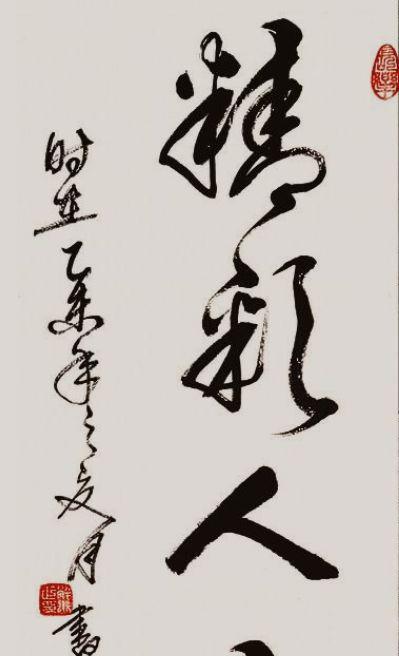 精彩人
时在乙未年之夏月书